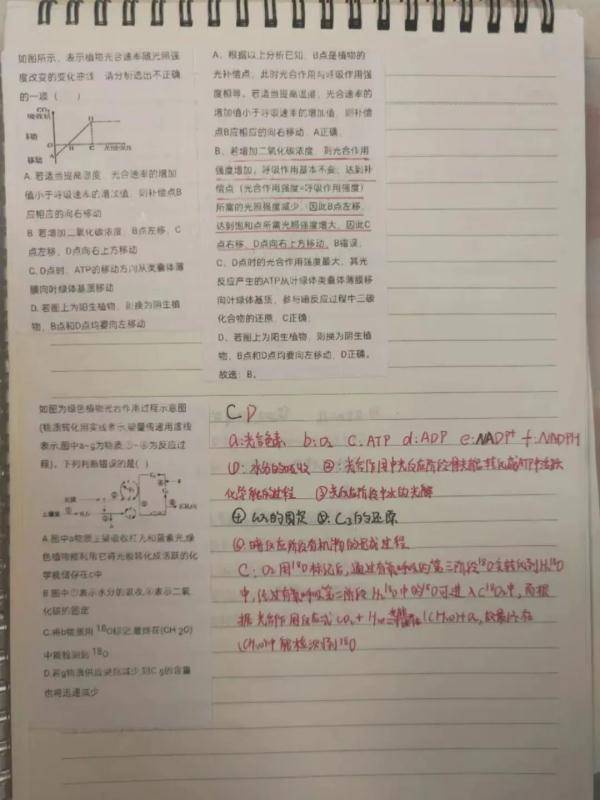 如图所示，表示植物光合速率随光照强
度改变的变化曲线，请分析选出不正确
的一项（ ）
CO₂
吸收
D
O
B
C
A
A. 若适当提高温度，光合速率的增加
值小于呼吸速率的增加值，则补偿点B
应相应的向右移动
B. 若增加二氧化碳浓度，B点左移，C
点左移，D点向右上方移动
C. D点时，ATP的移动方向从类囊体薄
膜向叶绿体基质移动
D. 若图上为阳生植物，则换为阴生植
物，B点和D点均要向左移动
A、根据以上分析已知，B点是植物的
光补偿点，此时光合作用与呼吸作用强
度相等。若适当提高温度，光合速率的
增加值小于呼吸速率的增加值，则补偿
点B应相应的向右移动，A正确；
B、若增加二氧化碳浓度，则光合作用
强度增加，呼吸作用基本不变，达到补
偿点（光合作用强度=呼吸作用强度）
所需的光照强度减少，因此B点左移，
达到饱和点所需光照强度增大，因此C
点右移，D点向右上方移动，B错误；
C、D点时的光合作用强度最大，其光
反应产生的ATP从叶绿体类囊体薄膜移
向叶绿体基质，参与暗反应过程中三碳
化合物的还原，C正确；
D、若图上为阳生植物，则换为阴生植
物，B点和D点均要向左移动，D正确。
故选：B。
如图为绿色植物光合作用过程示意图
(物质转化用实线表示,能量传递用虚线
表示,图中a~g为物质,①~⑥为反应过
程)，下列判断错误的是( )
A.图中a物质主要吸收红光和蓝紫光,绿
色植物能利用它将光能转化成活跃的化
学能储存在c中
B.图中①表示水分的吸收,④表示二氧
化碳的固定
C.将b物质用 ¹⁸O标记,最终在(CH₂O)
中能检测到 ¹⁸O
D.若g物质供应突然减少,则C₅的含量
也将迅速减少
CD
a:光合色素 b:O₂ c.ATP d:ADP e:NADP⁺ f:NADPH
①：水分的吸收 ②：光合作用中光反应阶段
化学能的过程 ③光反应阶段中水的光解
④ CO₂的固定 ⑤：C₃的还原
⑥：暗反应阶段有机物的形成过程
C：O₂用¹⁸O标记后，通过有氧呼吸的第三阶段¹⁸O去转化到H₂¹⁸O
中，经过有氧呼吸第二阶段H₂¹⁸O中的¹⁸O可进入C¹⁸O₂中，再根
据光合作用反应式CO₂+H₂O (CH₂O)+O₂，故最终在
(CH₂O)中能检测到¹⁸O